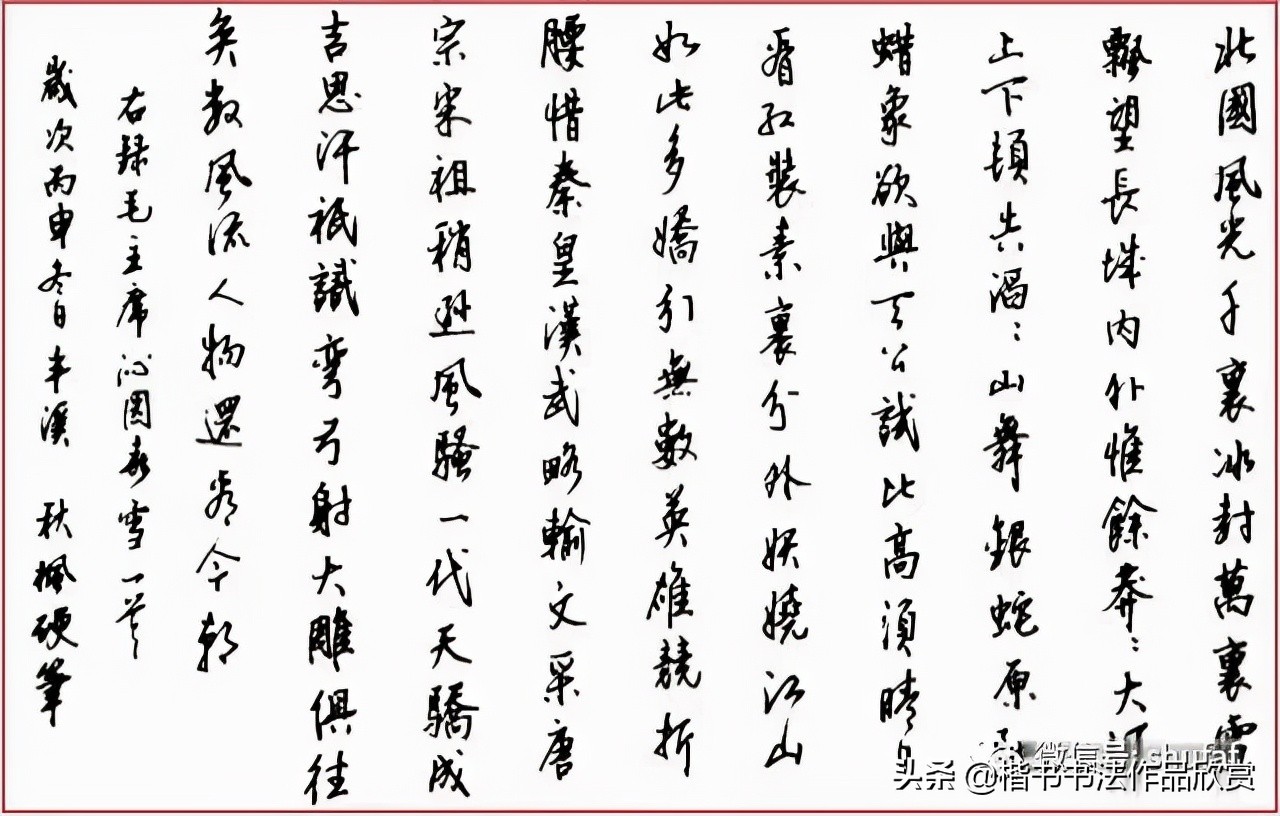 北國風光千裏冰封萬裏雪
飄望長城内外惟餘莽〻大河
上下頓失滔〻山舞銀蛇原馳
蜡象欲與天公試比高須晴日
看紅裝素裹分外妖嬈江山
如此多嬌引無數英雄競折
腰惜秦皇漢武略輸文采唐
宗宋祖稍遜風騷一代天驕成
吉思汗祇識彎弓射大雕俱往
矣數風流人物還看今朝
右録毛主席沁園春雪一首
歲次丙申冬日丰溪 秋楓硬筆
微信号:
头条 @楷书书法作品欣赏